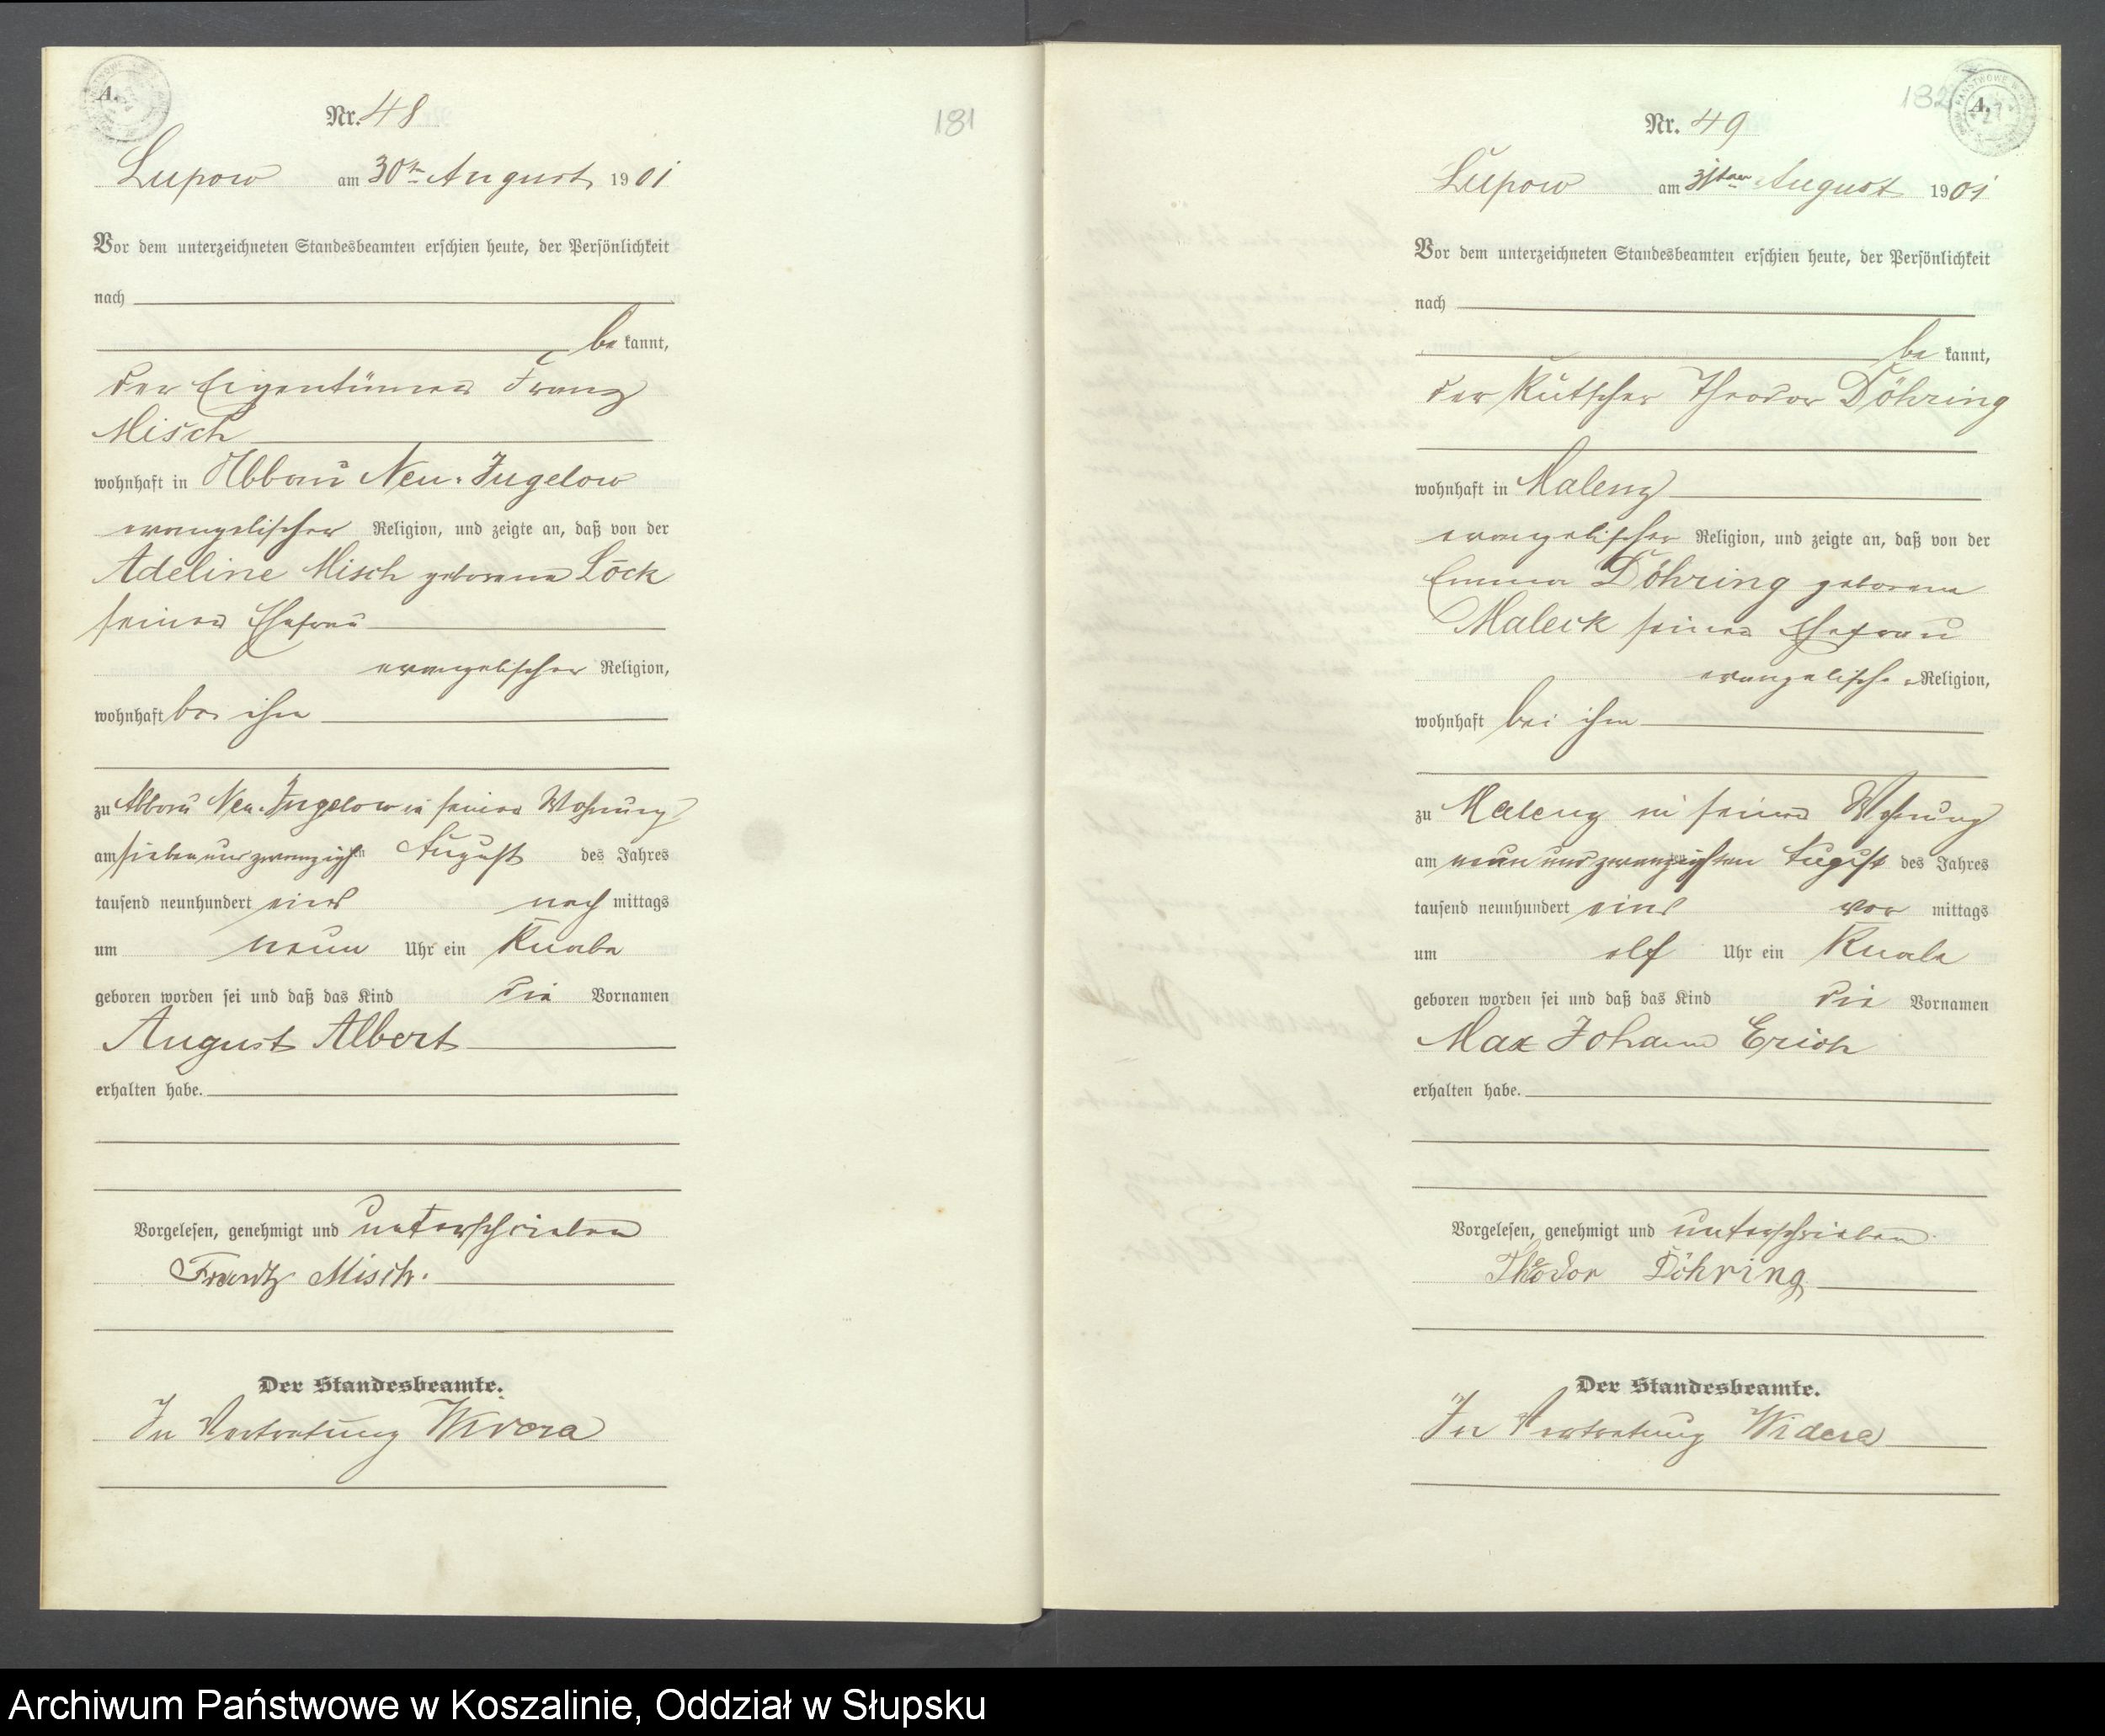 A.
Nr. 48
181
Lupow am 30ten August 1901
Vor dem unterzeichneten Standesbeamten erschien heute, der Persönlichkeit
nach
be kannt,
der Eigentümer Franz
Misch
wohnhaft in Abbau Neu-Jugelow
evangelischer Religion, und zeigte an, daß von der
Adeline Misch geborene Löck
seiner Ehefrau
evangelischer Religion,
wohnhaft bei ihm
zu Abbau Neu-Jugelow in seiner Wohnung
am siebenundzwanzigsten August des Jahres
tausend neunhundert eins nach mittags
um neun Uhr ein Knabe
geboren worden sei und daß das Kind die Vornamen
August Albert
erhalten habe.
Vorgelesen, genehmigt und unterschrieben
Frantz Misch.
Der Standesbeamte.
In Vertretung Widera
182
A.
Nr. 49
Lupow am 31ten August 1901
Vor dem unterzeichneten Standesbeamten erschien heute, der Persönlichkeit
nach
be kannt,
der Kutscher Theodor Döhring
wohnhaft in Malenz
evangelischer Religion, und zeigte an, daß von der
Emma Döhring geborene
Maleck seiner Ehefrau
evangelischer Religion,
wohnhaft bei ihm
zu Malenz in seiner Wohnung
am neunundzwanzigsten August des Jahres
tausend neunhundert eins vor mittags
um elf Uhr ein Knabe
geboren worden sei und daß das Kind die Vornamen
Max Johann Erich
erhalten habe.
Vorgelesen, genehmigt und unterschrieben
Theodor Döhring
Der Standesbeamte.
In Vertretung Widera
Archiwum Państwowe w Koszalinie, Oddział w Słupsku